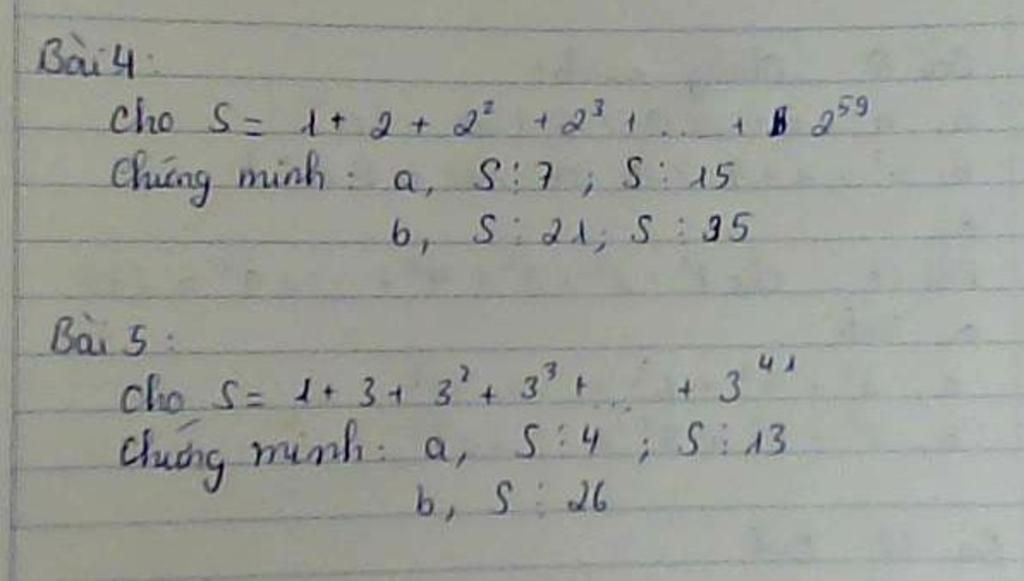 Bài 4:
Cho S = 1 + 2 + 2² + 2³ + ... + 2⁵⁹
Chứng minh : a, S ⋮ 7 ; S ⋮ 15
b, S ⋮ 21 ; S ⋮ 35
Bài 5 :
Cho S = 1 + 3 + 3² + 3³ + ... + 3⁴¹
Chứng minh : a, S ⋮ 4 ; S ⋮ 13
b, S ⋮ 26